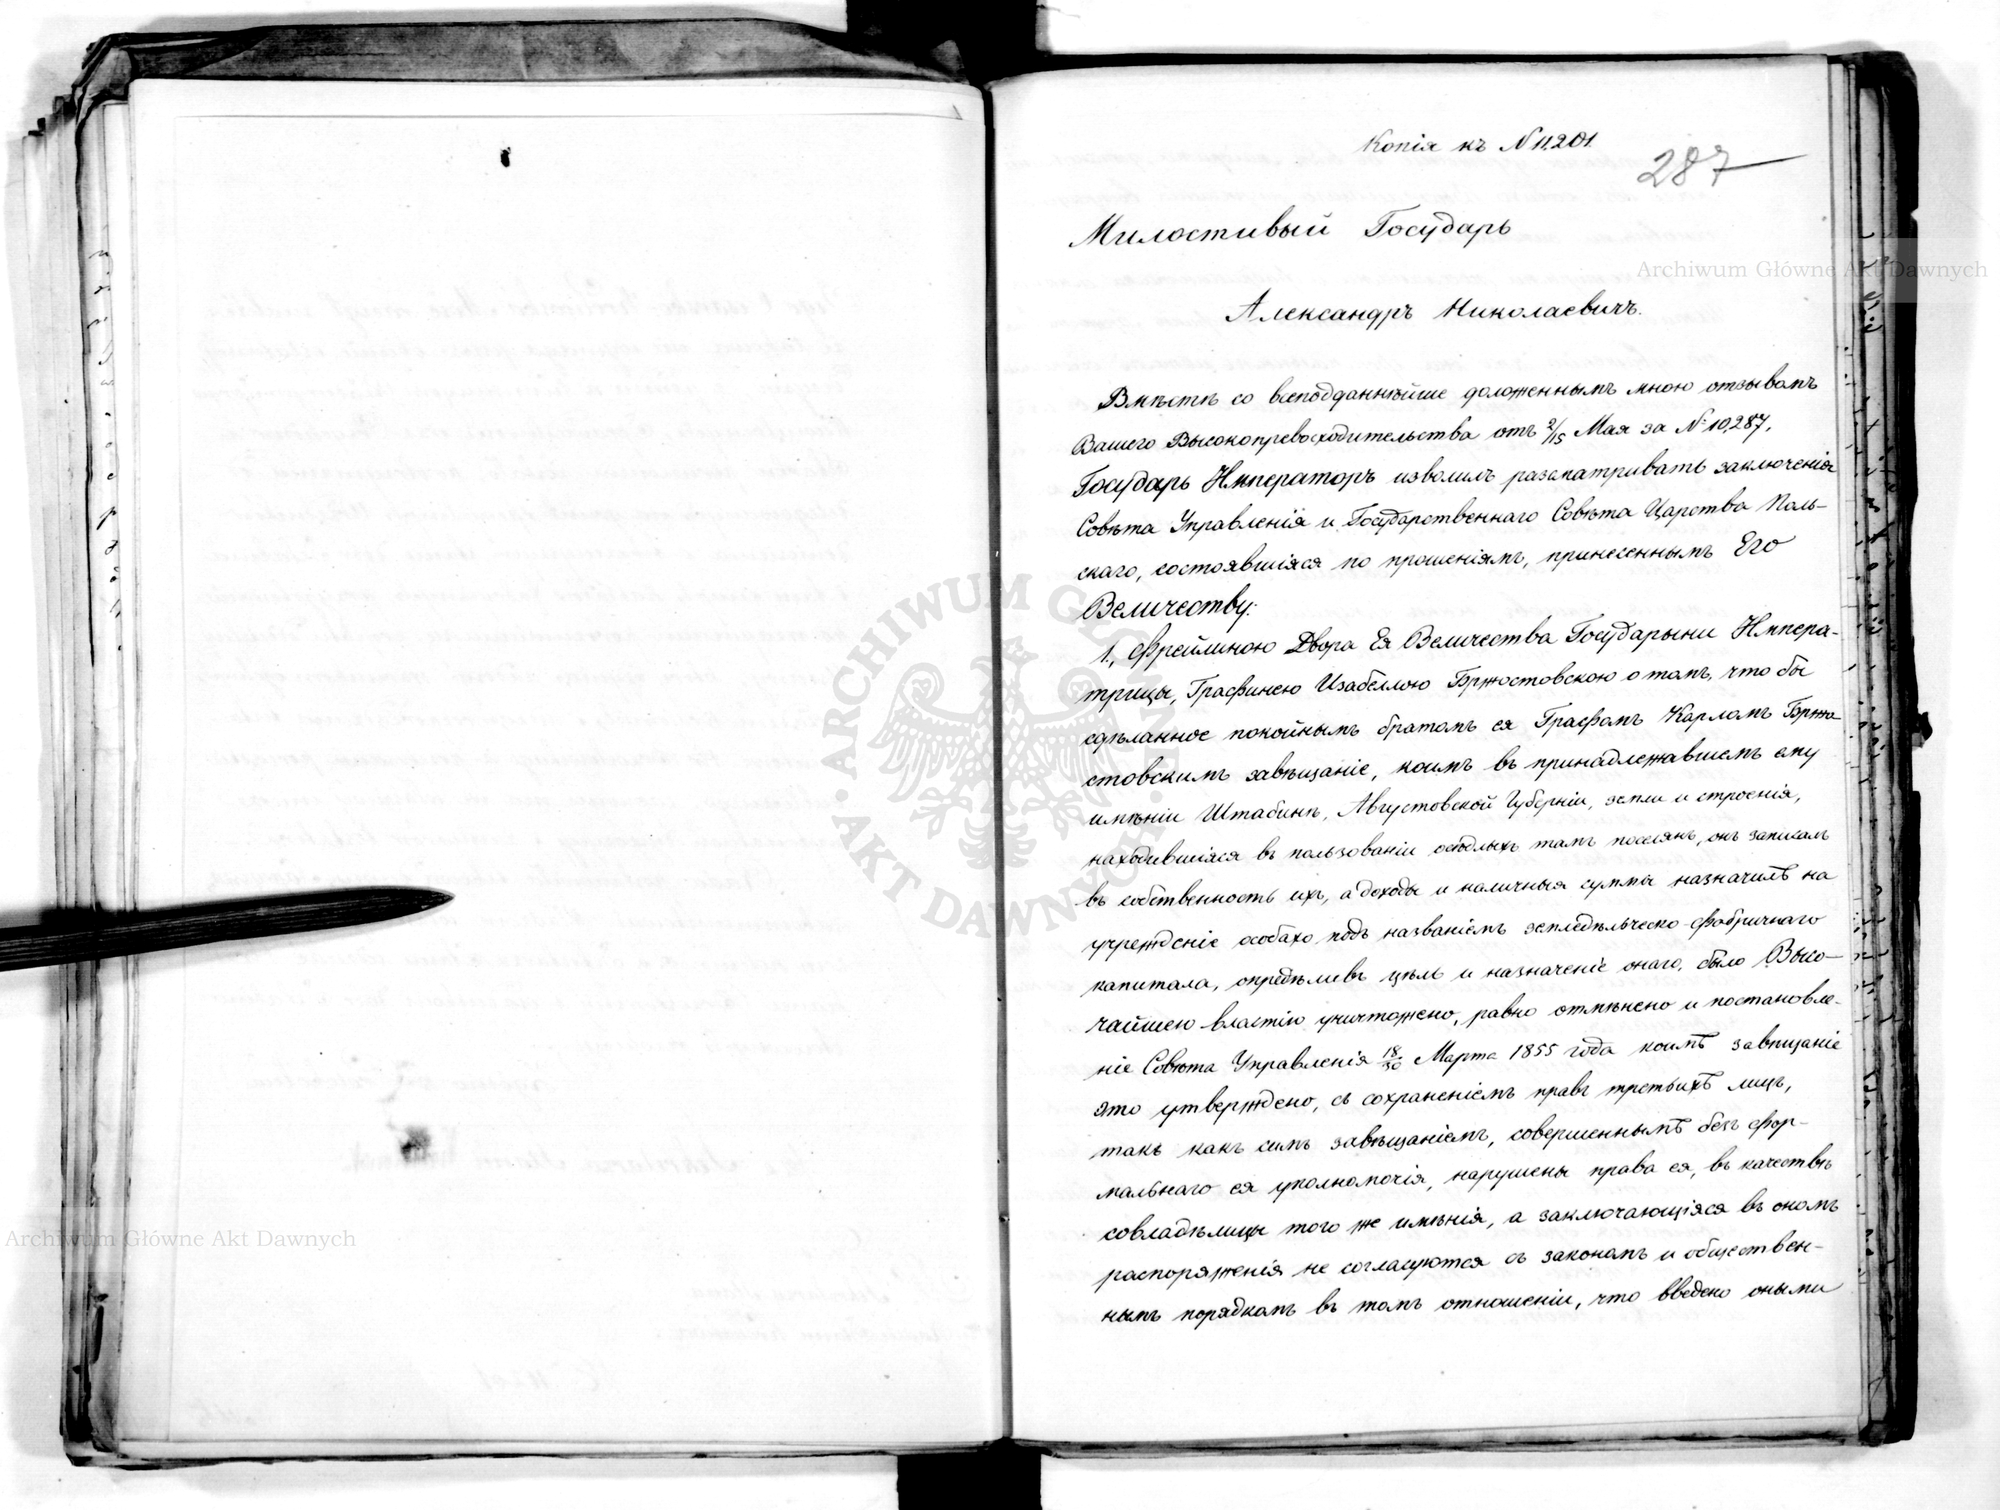 Копія къ № 11,201.
287
Милостивый Государь
Александръ Николаевичъ.
Вмѣстѣ со всеподданнѣйше доложеннымъ мною отзывомъ
Вашего Высокопревосходительства отъ 2/15 Мая за № 10,287,
Государь Императоръ изволилъ разсматривать заключенія
Совѣта Управленія и Государственнаго Совѣта Царства Поль-
скаго, состоявшіяся по прошеніямъ, принесеннымъ Его
Величеству:
1., Фрейлиною Двора Ея Величества Государыни Импера-
трицы, Графинею Изабеллою Бржостовскою о томъ, что бы
сдѣланное покойнымъ братомъ ея Графомъ Карломъ Бржо-
стовскимъ завѣщаніе, коимъ въ принадлежавшемъ ему
имѣніи Штабинѣ, Августовской Губерніи, земли и строенія,
находившіяся въ пользованіи осѣдлыхъ тамъ поселянъ, онъ записалъ
въ собственность ихъ, а доходы и наличныя суммы назначилъ на
учрежденіе особаго подъ названіемъ земледѣльческо-фабричнаго
капитала, опредѣливъ цѣль и назначеніе онаго, было Высо-
чайшею властію уничтожено, равно отмѣнено и постановле-
ніе Совѣта Управленія 18/30 Марта 1855 года коимъ завѣщаніе
это утверждено, съ сохраненіемъ правъ третьихъ лицъ,
такъ какъ симъ завѣщаніемъ, совершеннымъ безъ фор-
мальнаго ея уполномочія, нарушены права ея, въ качествѣ
совладѣлицы того же имѣнія, а заключающіяся въ ономъ
распоряженія не согласуются съ закономъ и обществен-
нымъ порядкомъ въ томъ отношеніи, что введено оными
Archiwum Główne Akt Dawnych
Archiwum Główne Akt Dawnych
ARCHIWUM GŁÓWNE AKT DAWNYCH